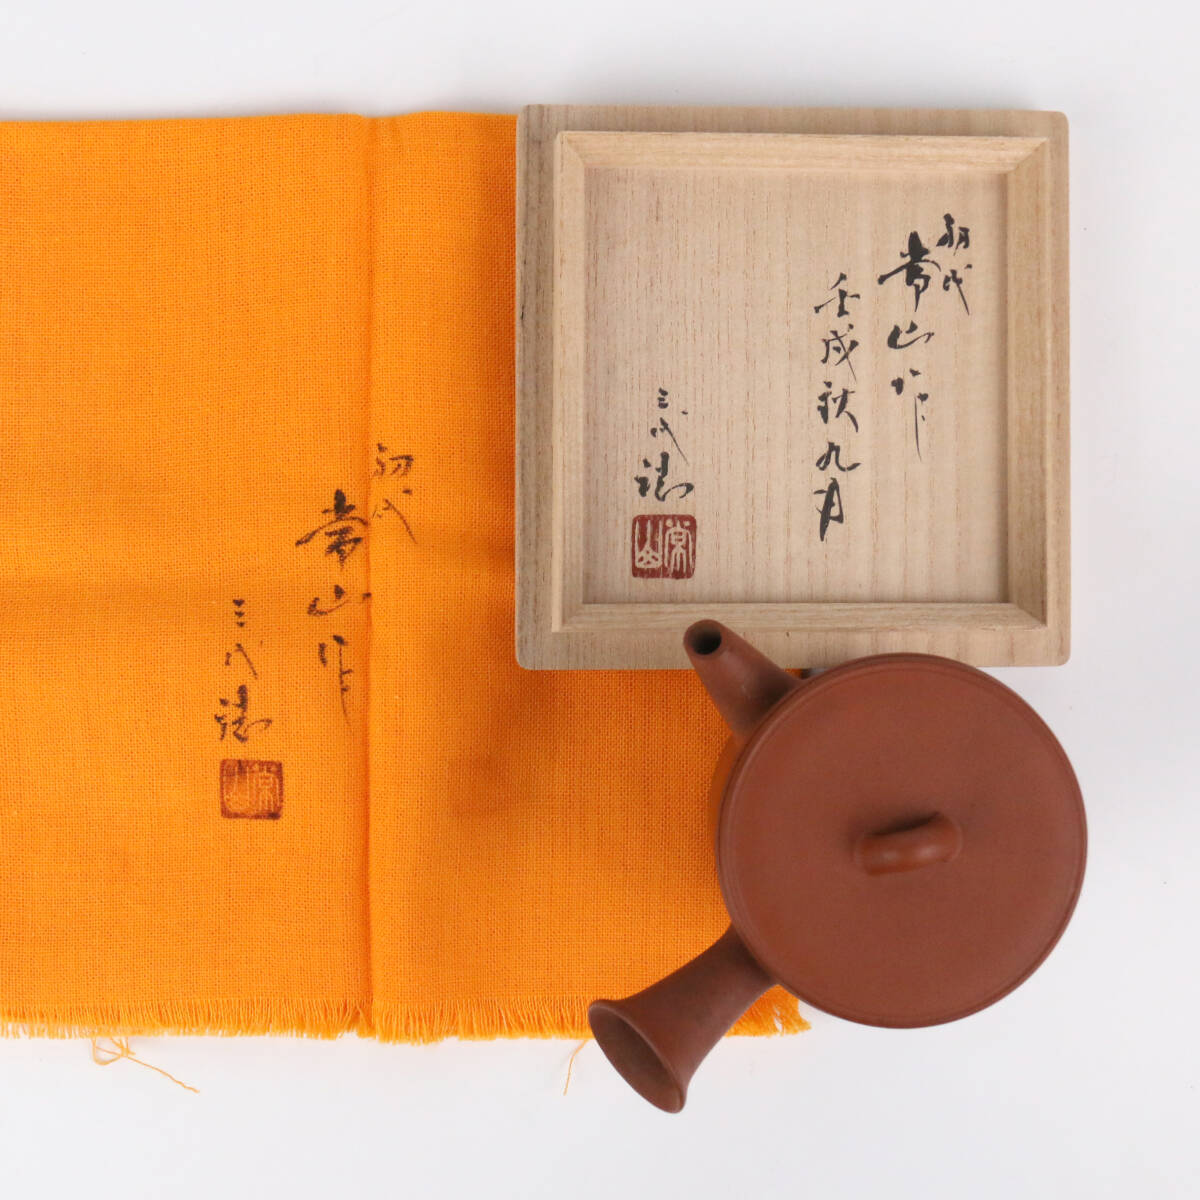 初代
常山作
壬戌秋九月
三代
常山
初代
常山作
三代
常山